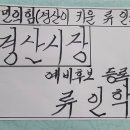 년의힘(경산이 키운 류인
경산시장
예비후보 등록
류인학